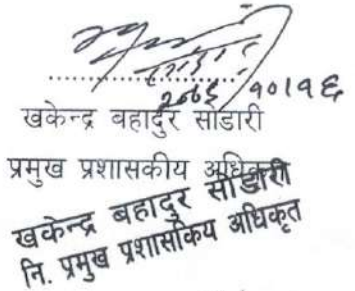 २०८१/१०/१६
खकेन्द्र बहादुर सोडारी
प्रमुख प्रशासकीय अधिकृत
खकेन्द्र बहादुर सोडारी
नि. प्रमुख प्रशासकिय अधिकृत